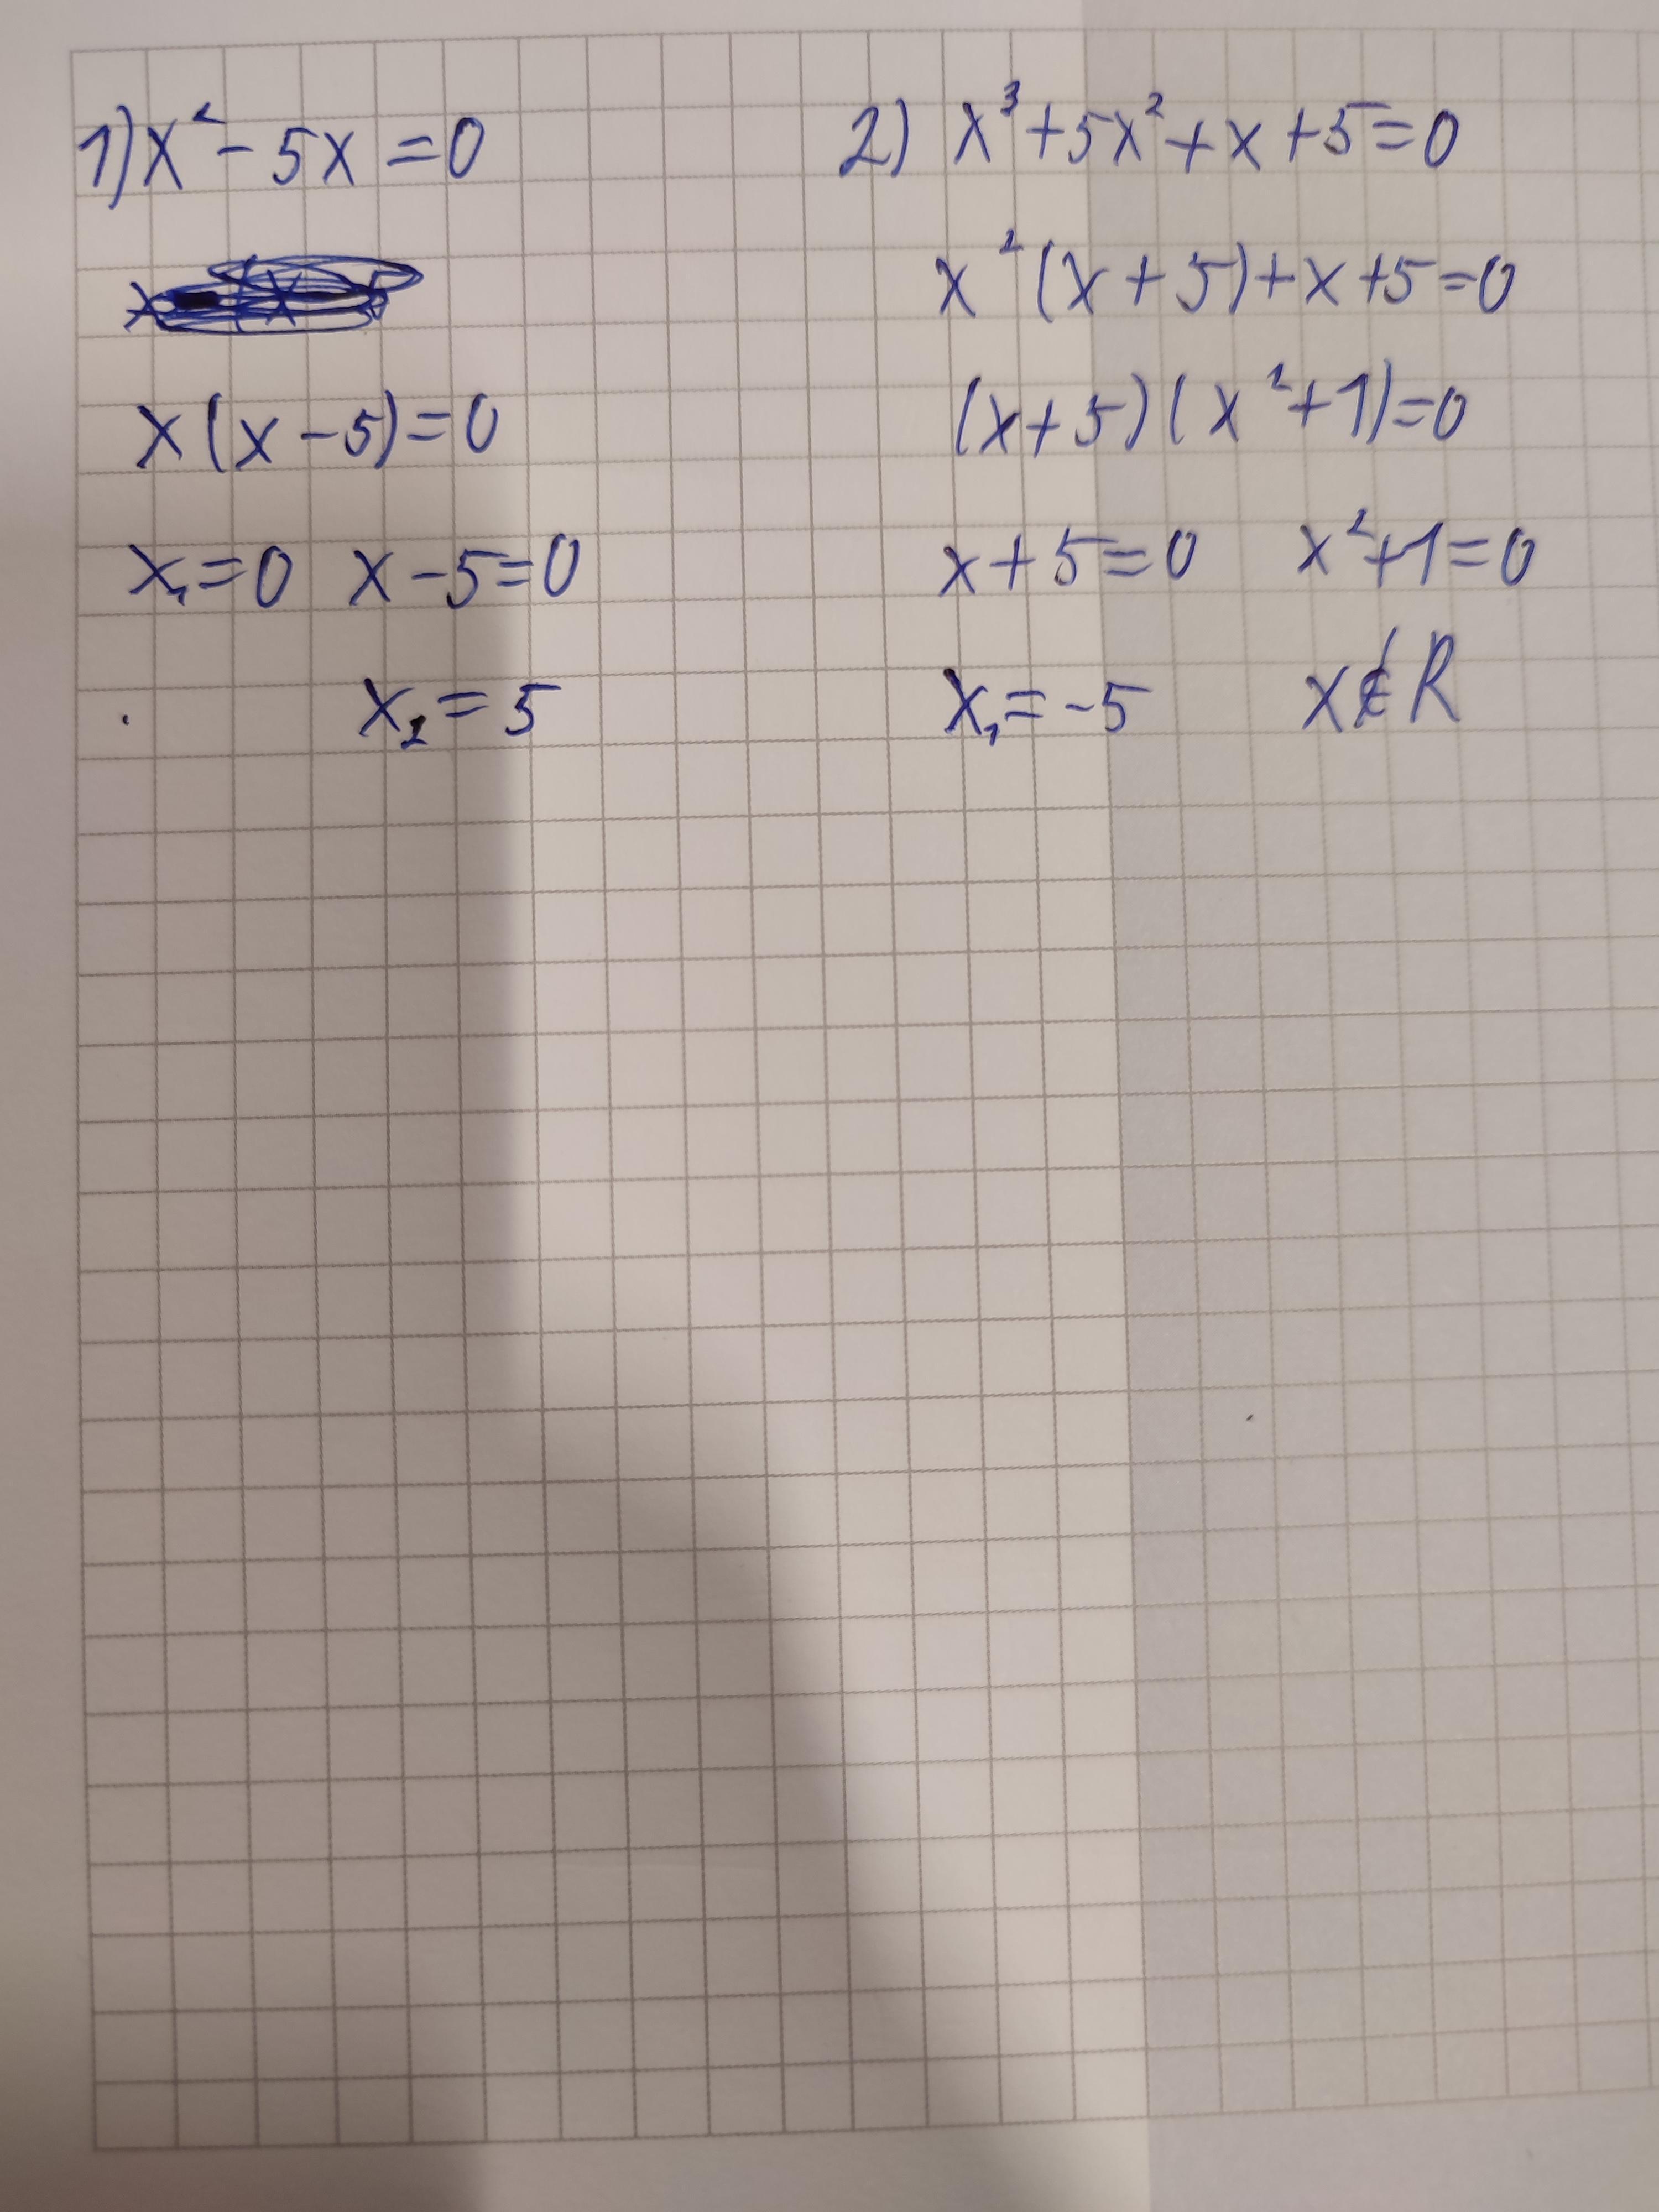 1) x² - 5x = 0
x(x - 5) = 0
x₁ = 0 x - 5 = 0
x₂ = 5
2) x³ + 5x² + x + 5 = 0
x²(x + 5) + x + 5 = 0
(x + 5)(x² + 1) = 0
x + 5 = 0 x² + 1 = 0
x₁ = -5 x ∉ R